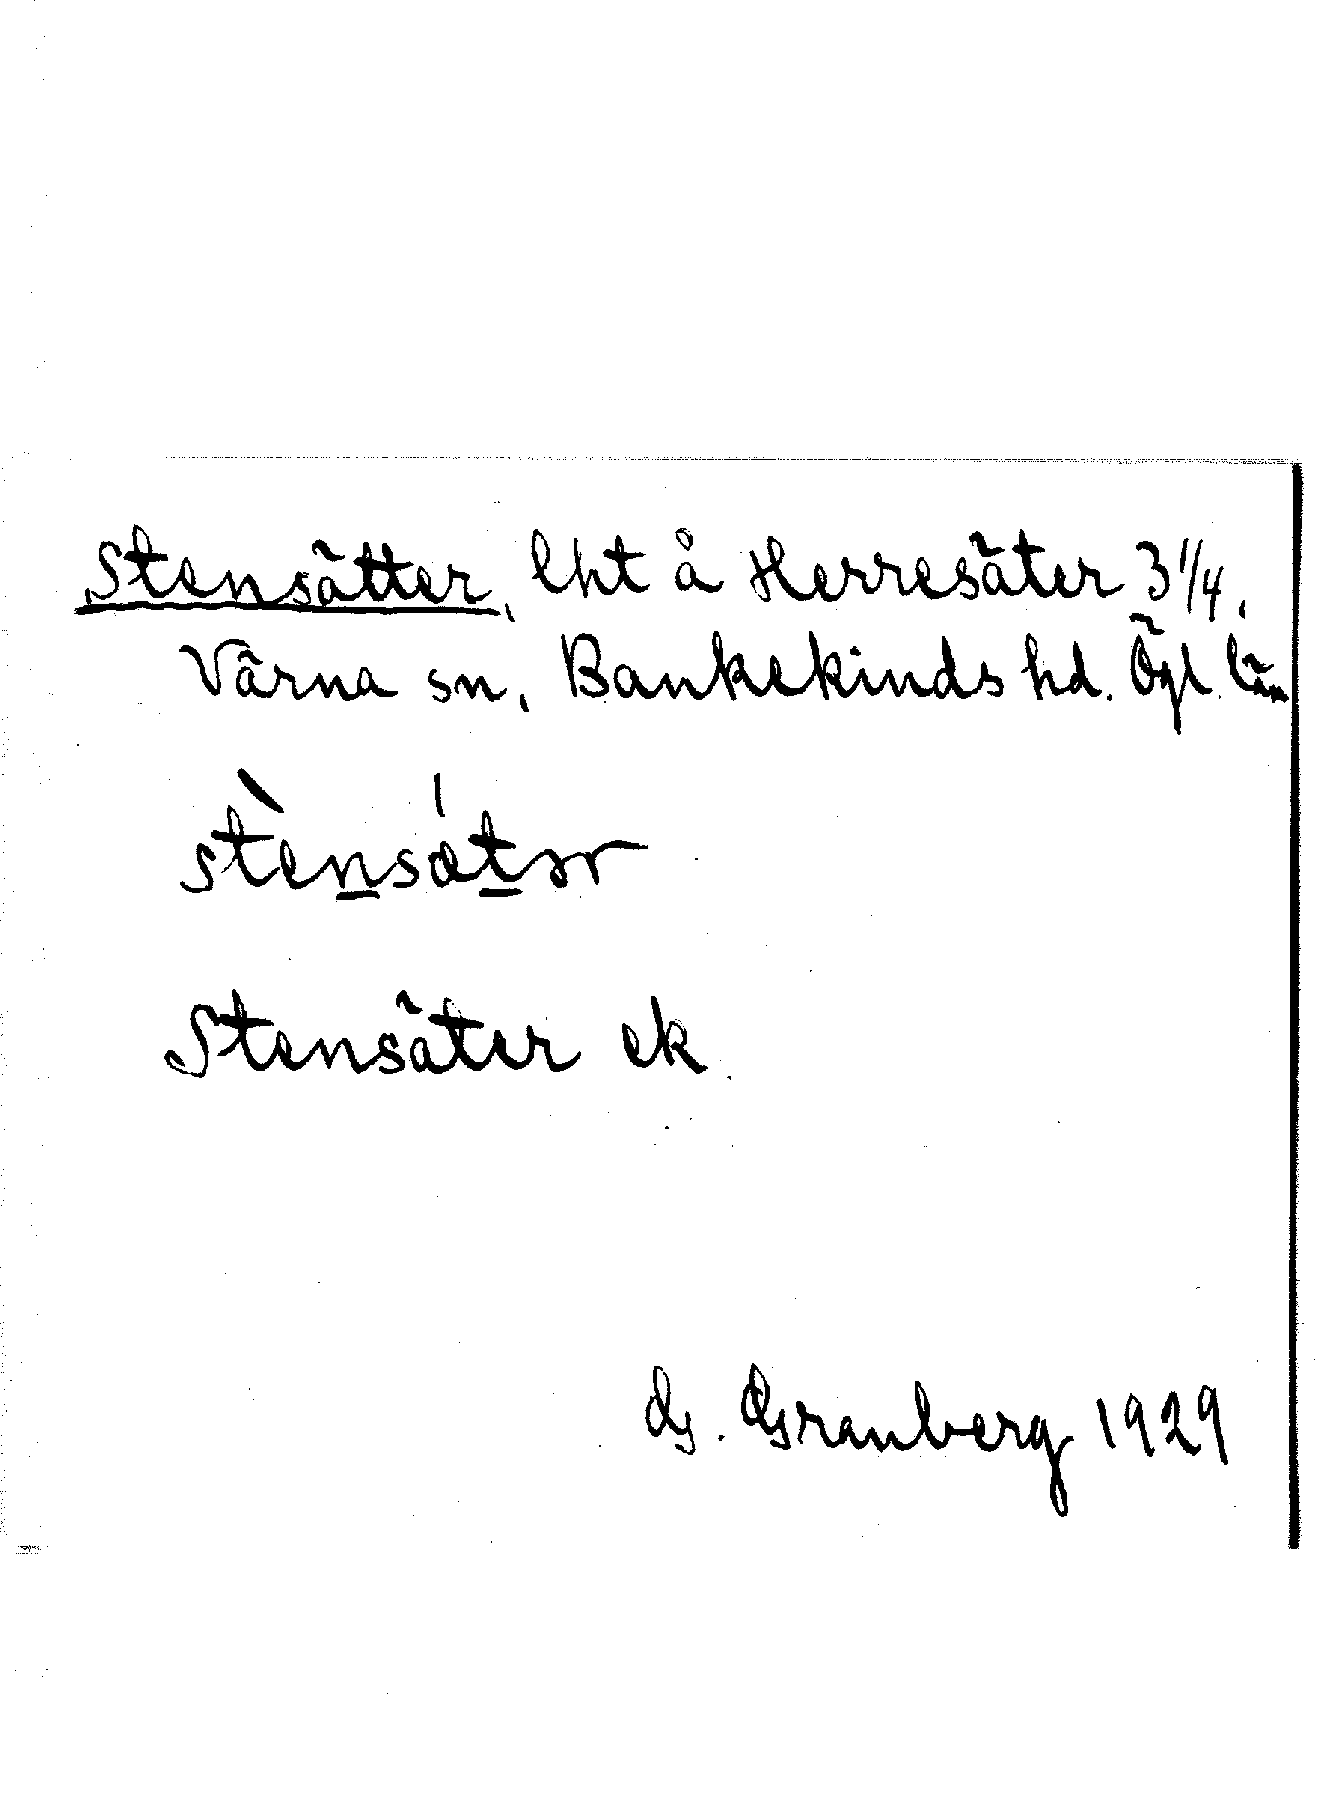 Stensätter, lht å Herresäter 3 1/4,
Värna sn, Bankekinds hd. Ögl. län
stènsǽtər
Stensäter ek
G. Granberg 1929